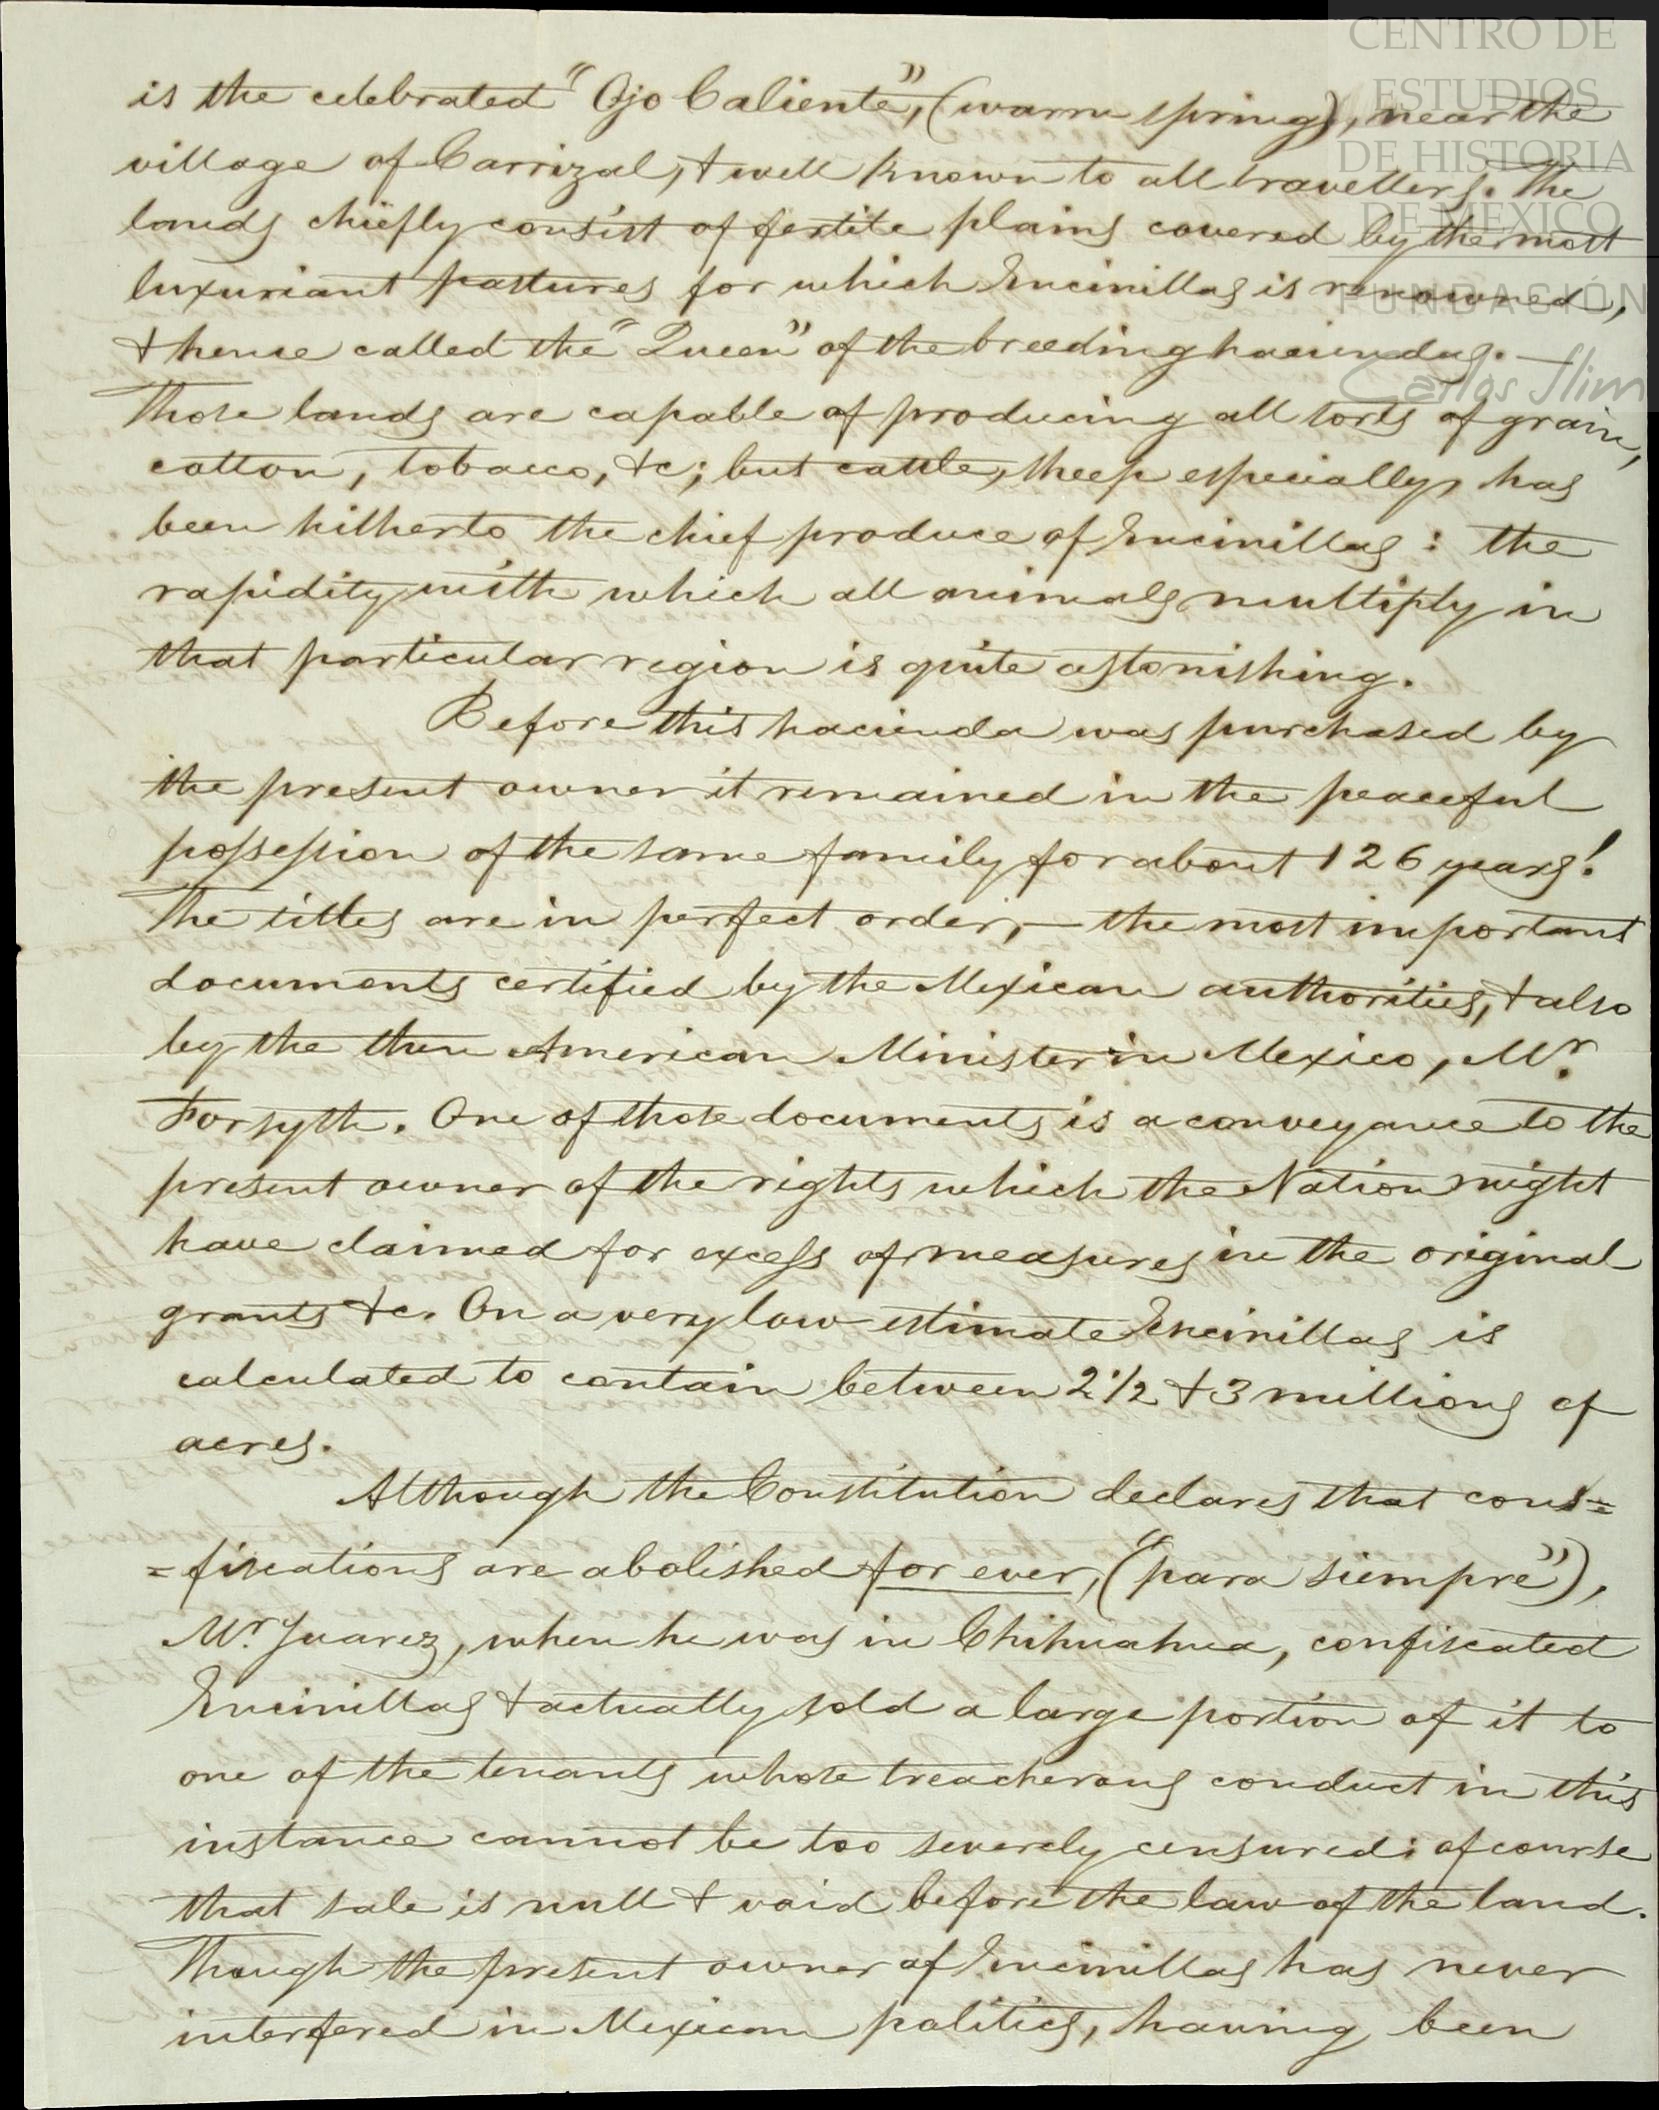 CENTRO DE
ESTUDIOS
DE HISTORIA
DE MEXICO
FUNDACIÓN
Carlos Slim
is the celebrated "Ojo Caliente", (warm spring), near the
village of Carrizal, & well known to all travellers. The
lands chiefly consist of fertile plains covered by the most
luxuriant pastures for which Encinillas is renowned,
& hence called the "Queen" of the breeding haciendas. —
Those lands are capable of producing all sorts of grain,
cotton, tobacco, &c; but cattle, sheep especially, has
been hitherto the chief produce of Encinillas: the
rapidity with which all animals multiply in
that particular region is quite astonishing.
Before this hacienda was purchased by
the present owner it remained in the peaceful
possession of the same family for about 126 years!
The titles are in perfect order, — the most important
documents certified by the Mexican authorities, & also
by the then American Minister in Mexico, Mr.
Forsyth. One of those documents is a conveyance to the
present owner of the rights which the Nation might
have claimed for excess of measures in the original
grants &c. On a very low estimate Encinillas is
calculated to contain between 2 1/2 & 3 millions of
acres.
Although the Constitution declares that cons=
=fiscations are abolished for ever, ("para siempre"),
Mr. Juarez, when he was in Chihuahua, confiscated
Encinillas & actually sold a large portion of it to
one of the tenants whose treacherous conduct in this
instance cannot be too severely censured: of course
that sale is null & void before the law of the land.
Though the present owner of Encinillas has never
interfered in Mexican politics, having been